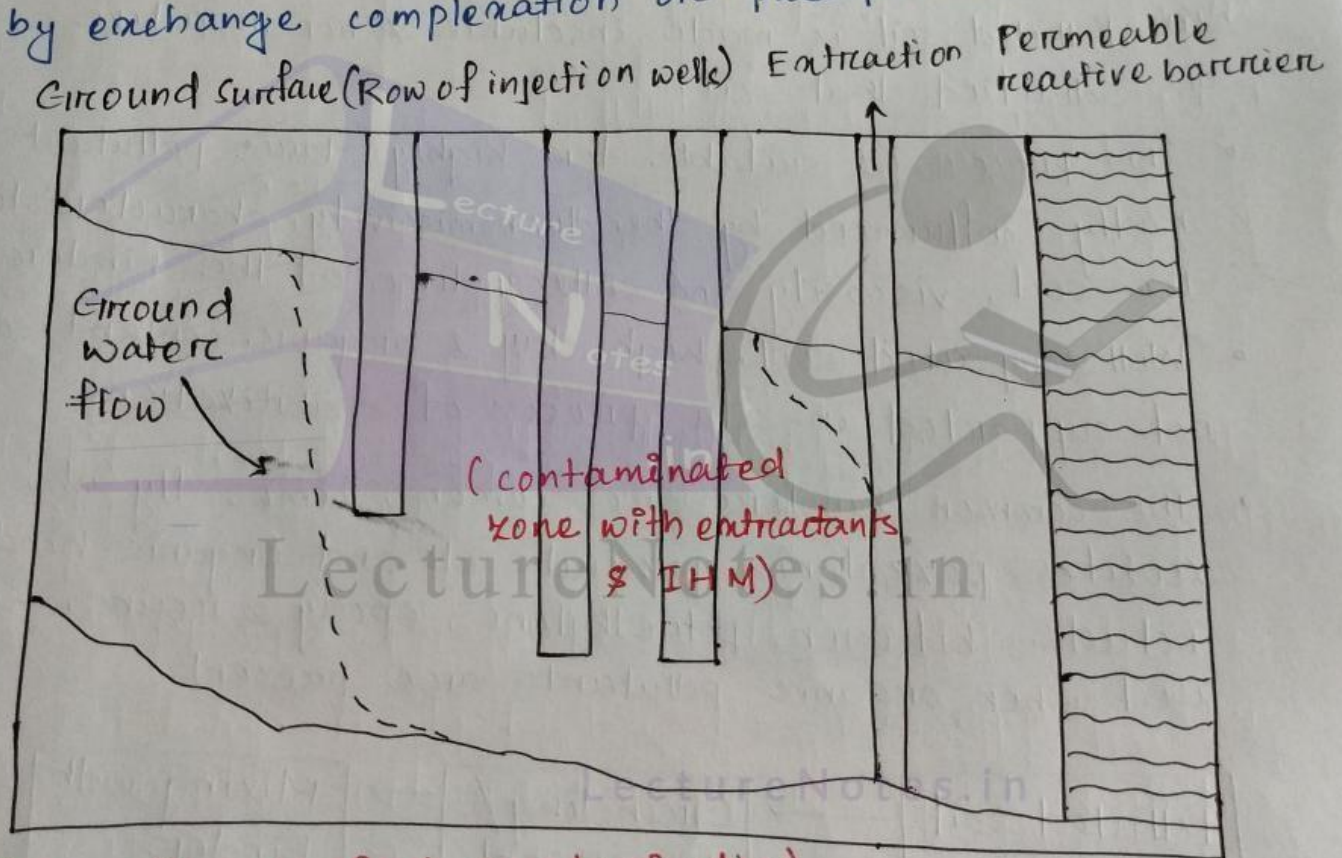 by exchange complexation
Ground Surface (Row of injection wells) Extraction Permeable
reactive barrier
Lecture
Notes
.in
Ground
water
flow
(contaminated
zone with extractants
& IHM)
LectureNotes.in
LectureNotes.in